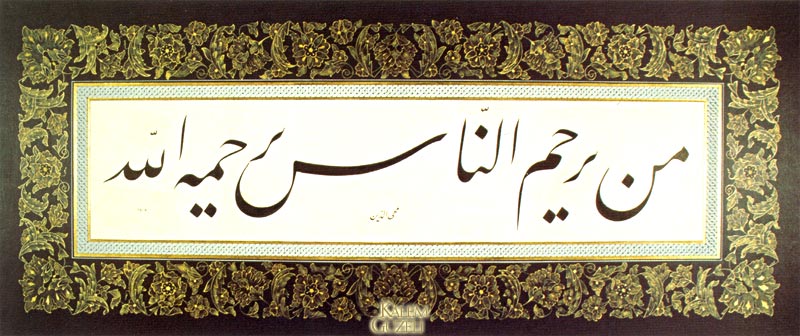 من يرحم النّاس يرحمه اللّه
محي الدين
KALEM
GÜZELİ